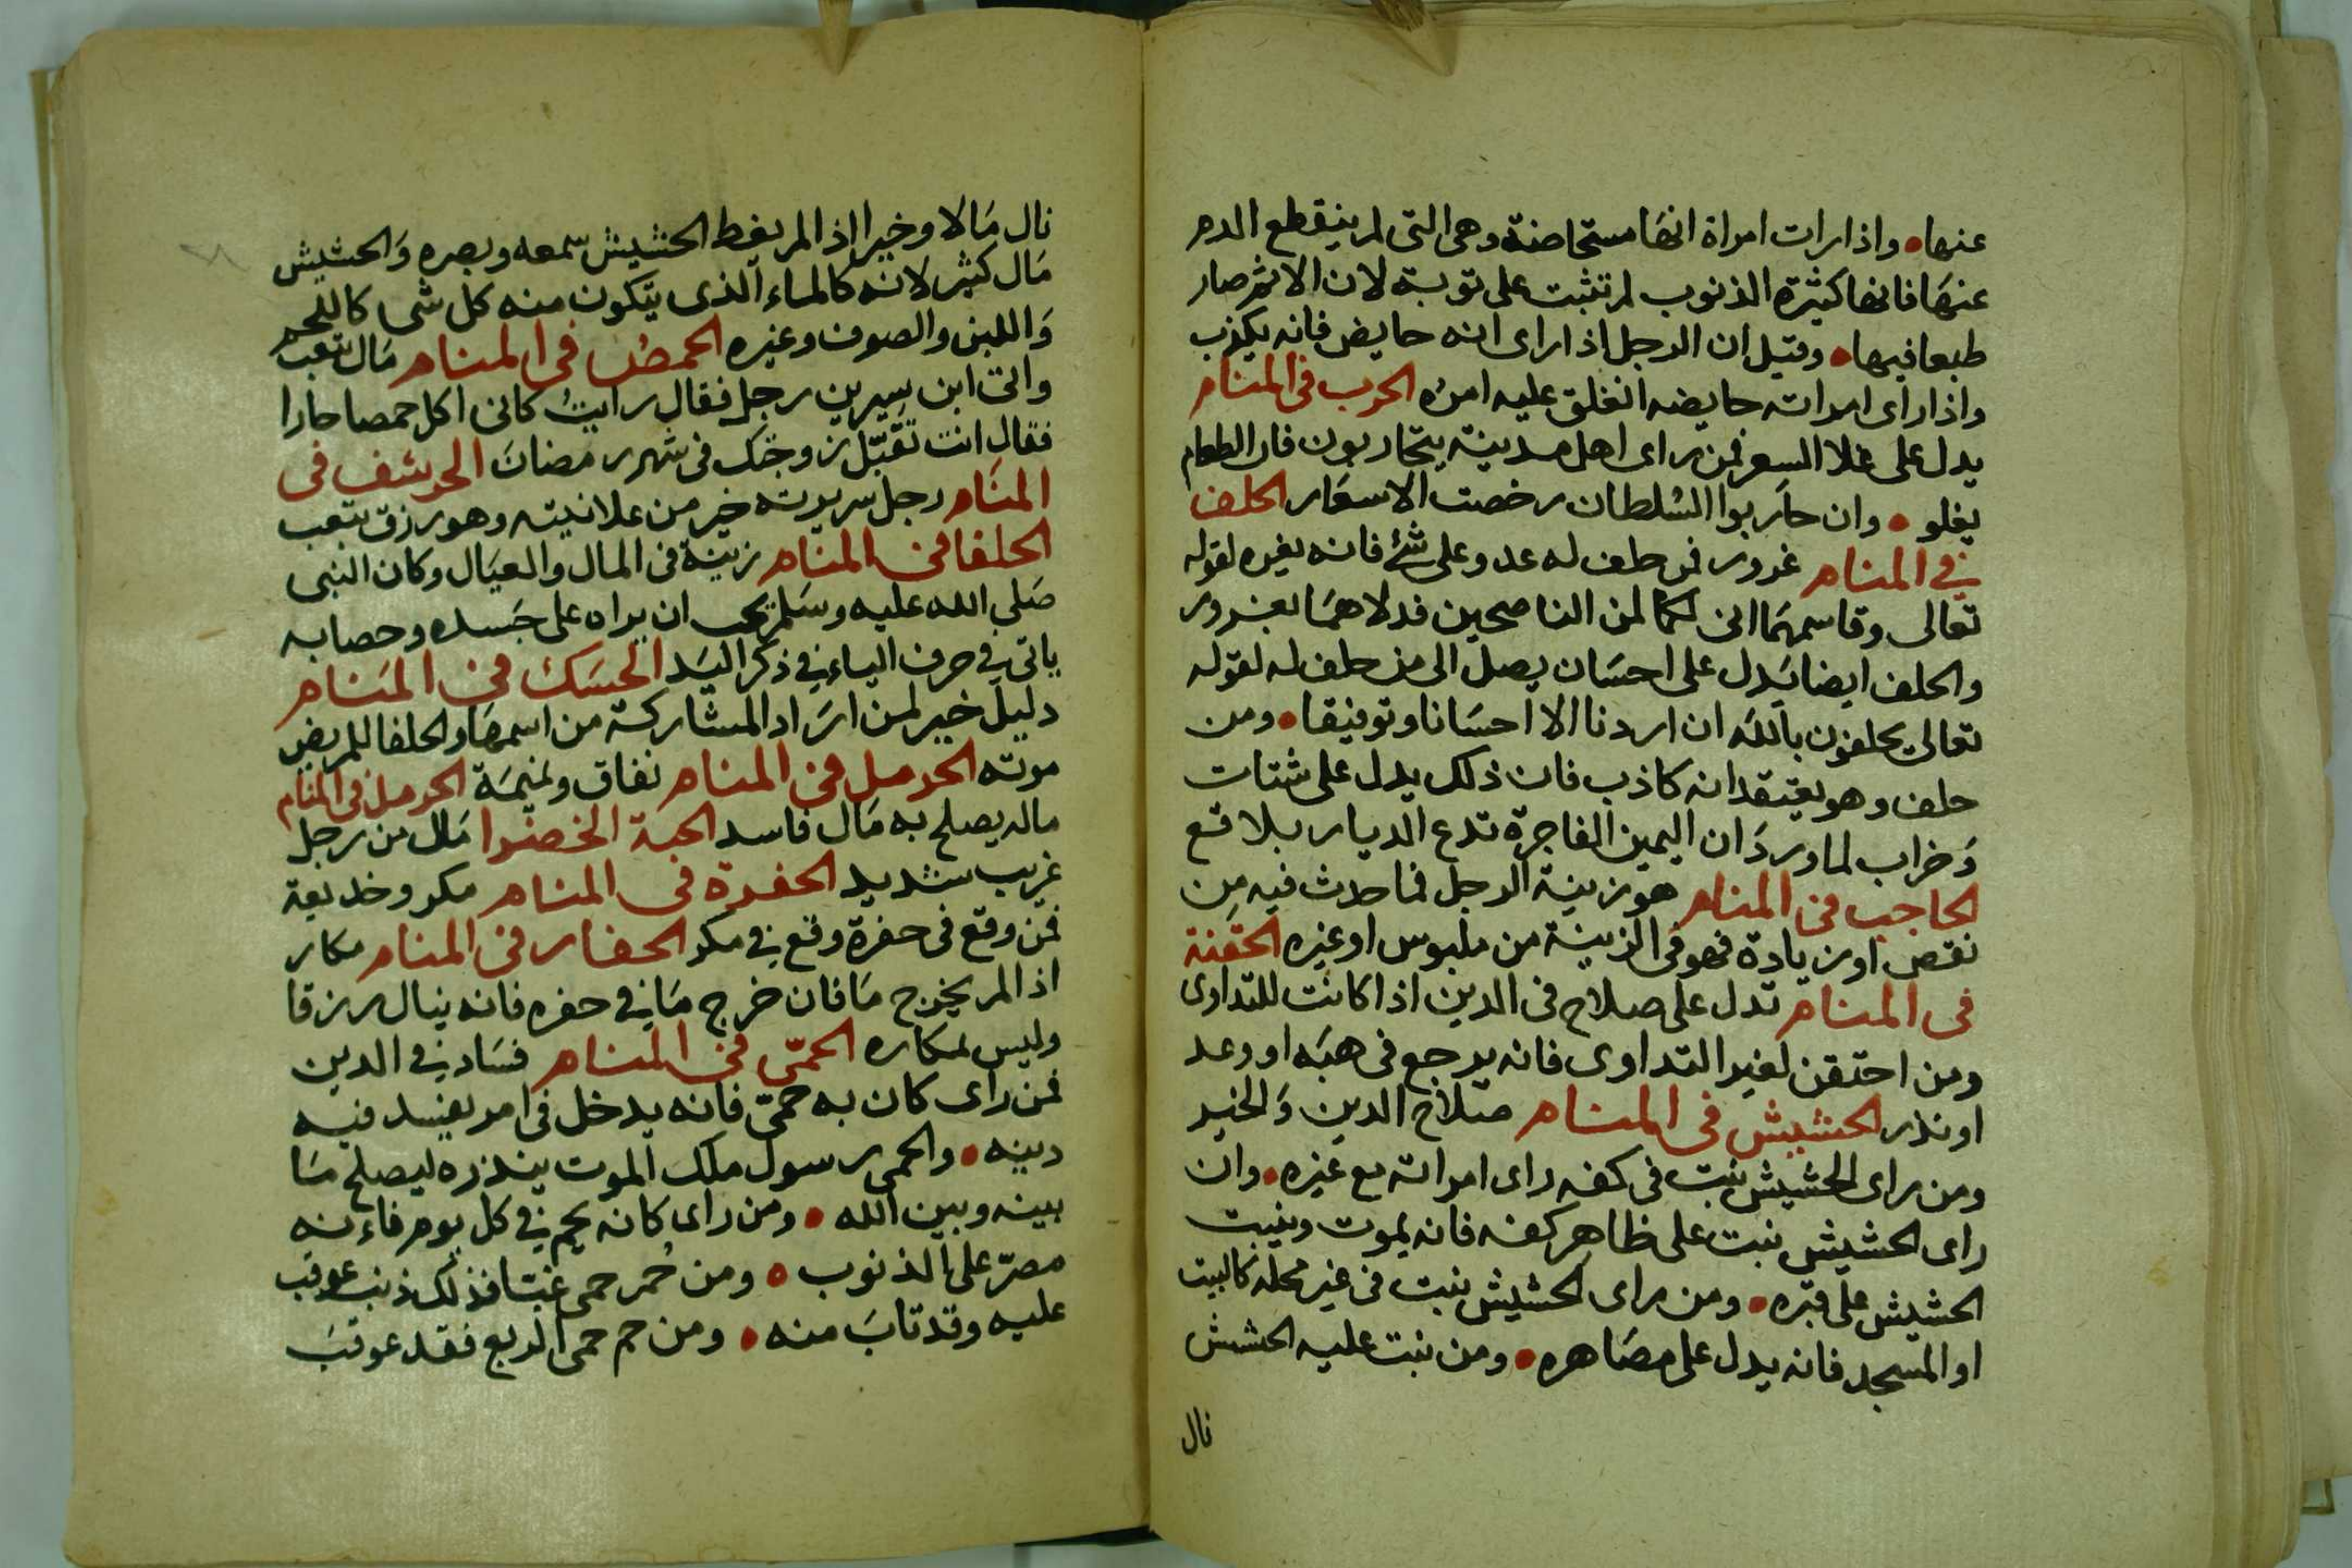 عنها • واذا رات امراة انها مستحاضة وهى التى لم ينقطع الدم
عنها فانها كثيرة الذنوب لم تثبت على توبة لان الاثم صار
طبعا فيها • وقيل ان الرجل اذا راى انه حايض فانه يكذب
واذا راى امراته حايضه انغلق عليه امره الحرب فى المنام
يدل على غلا السعر فمن راى اهل مدينة يتحاربون فان الطعام
يغلو • وان حاربوا السلطان رخصت الاسعار الحلف
فى المنام غرور فمن حلف له عدو على شئ فانه يغره لقوله
تعالى وقاسمهما انى لكما لمن الناصحين فدلاهما بغرور
والحلف ايضا يدل على احسان يصل الى من حلف له لقوله
تعالى يحلفون بالله ان اردنا الا احسانا وتوفيقا • ومن
حلف وهو يعتقد انه كاذب فان ذلك يدل على شتات
وخراب لما ورد ان اليمين الفاجرة تدع الديار بلاقع
الحاجب فى المنام هو زينة الرجل فما حدث فيه من
نقص او زيادة فهو فى الزينة من ملبوس او غيره الحقنة
فى المنام تدل على صلاح فى الدين اذا كانت للتداوى
ومن احتقن لغير التداوى فانه يرجع فى هبه او وعد
او نذر الحشيش فى المنام صلاح الدين والخير
ومن راى الحشيش نبت فى كفه راى امراته مع غيره • وان
راى الحشيش نبت على ظاهر كفه فانه يموت وينبت
الحشيش على قبره • ومن راى الحشيش نبت فى غير محله كالبيت
او المسجد فانه يدل على مصاهره • ومن نبت عليه الحشش
نال
نال مالا وخيرا اذا لم يغط الحشيش سمعه وبصره والحشيش
مال كثير لانه كالماء الذى يتكون منه كل شى كاللحم
واللبن والصوف وغيره الحمص فى المنام مال بتعب
واتى ابن سيرين رجل فقال رايت كانى اكل حمصا حارا
فقال انت تقبل زوجتك فى شهر رمضان الحرشف فى
المنام رجل سريرته خير من علانيته وهو رزق بتعب
الحلفا فى المنام زينة فى المال والعيال وكان النبى
صلى الله عليه وسلم يحب ان يراه على جسده وحصابه
ياتى فى حرف الياء فى ذكر اليد الحسك فى المنام
دليل خير لمن اراد المشاركة من اسمها والحلفا للمريض
موته الحرمل فى المنام نفاق ونميمة الحرمل فى المنام
ماله يصلح به مال فاسد الحبة الخضرا مال من رجل
غريب شديد الحفرة فى المنام مكر وخديعة
فمن وقع فى حفرة وقع فى مكر الحفار فى المنام مكار
اذا لم يخرج ما فان خرج ما فى حفره فانه ينال رزقا
وليس بمكاره الحمى فى المنام فساد فى الدين
فمن راى كان به حمى فانه يدخل فى امر يفسد فيه
دينه • والحمى رسول ملك الموت ينذره ليصلح ما
بينه وبين الله • ومن راى كانه يحم فى كل يوم فاءنه
مصر على الذنوب • ومن حمر حمى غبتا فذلك ذنب عوقب
عليه وقد تاب منه • ومن حم حمى الربع فقد عوقب